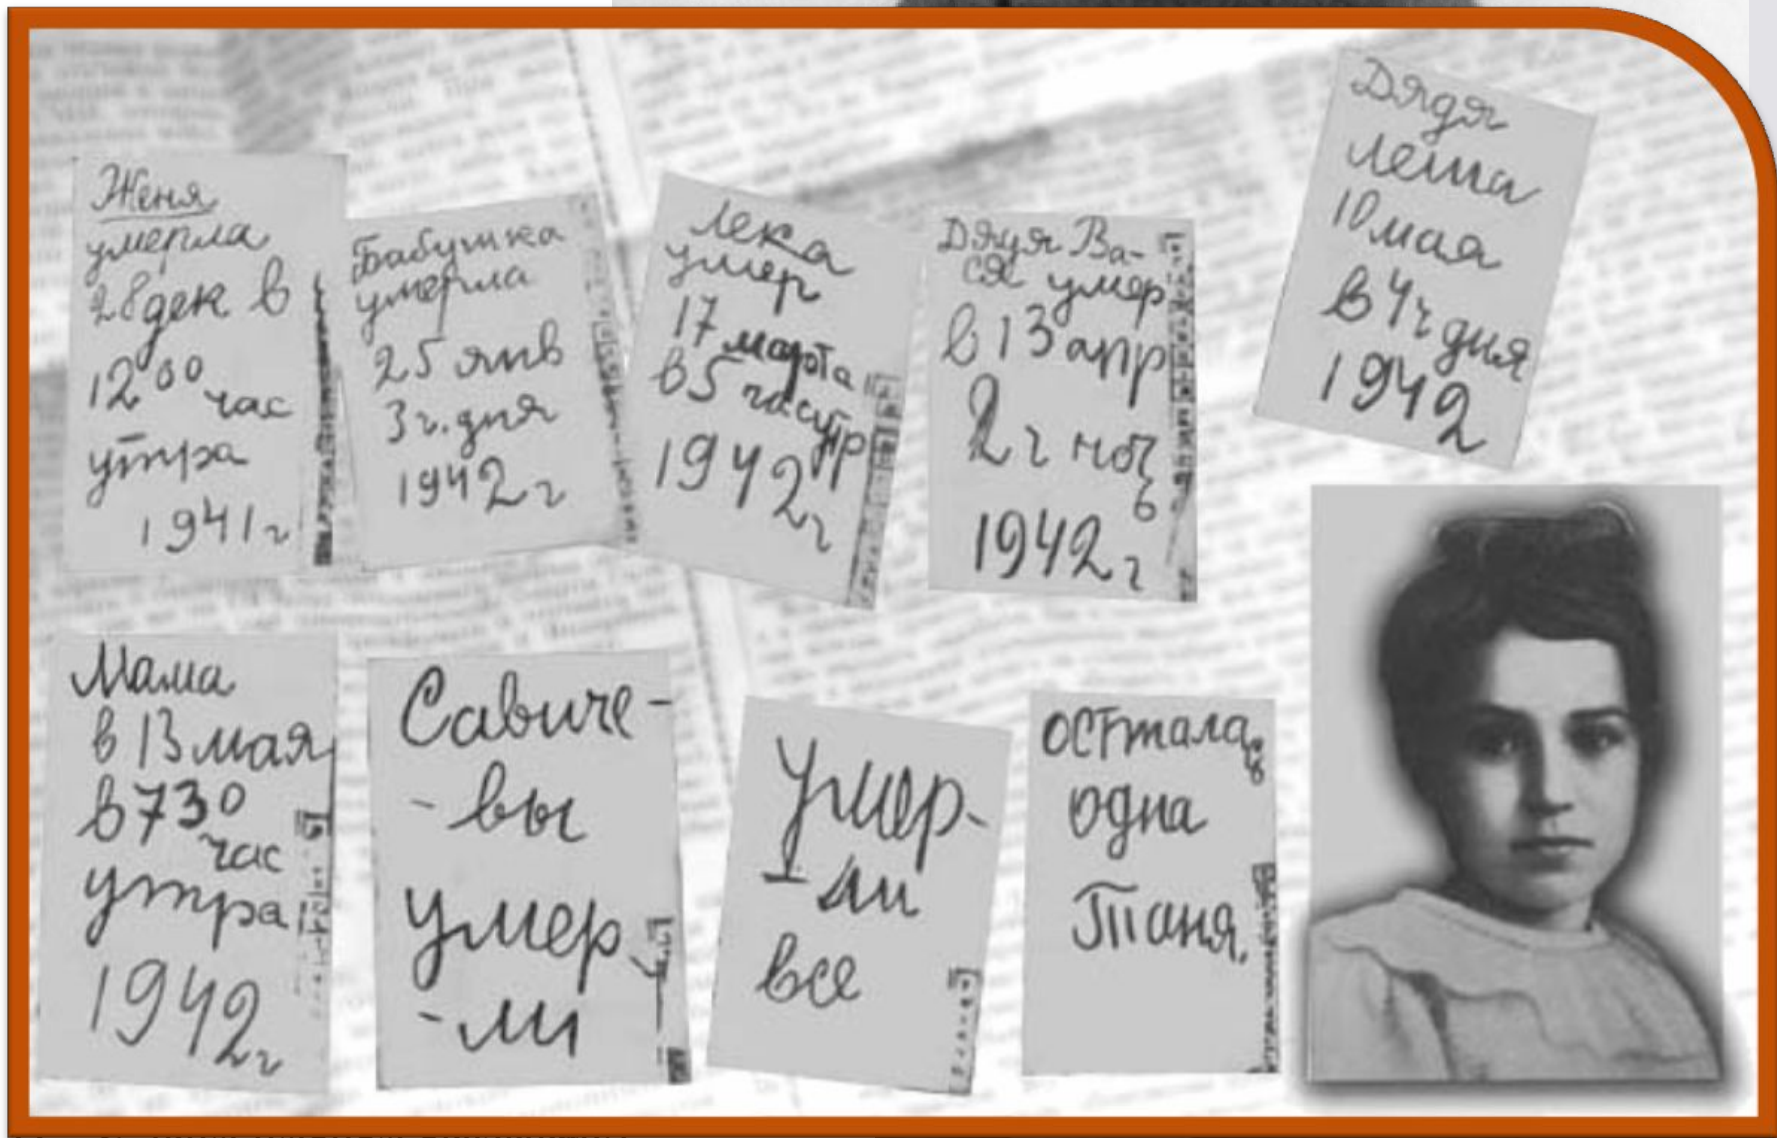 Женя
умерла
28 дек в
12 00 час
утра
1941 г
Бабушка
умерла
25 янв
3 ч. дня
1942 г
Лека
умер
17 марта
в 5 час утр
1942 г
Дядя Ва-
ся умер
в 13 апр
2 ч ноч
6
1942 г
Дядя
Леша
10 мая
в 4 ч дня
1942
Мама
в 13 мая
в 7 30
час
утра
1942 г
Савиче-
-вы
умер
-ли
Умер-
-ли
все
осттала сь
одна
Таня.